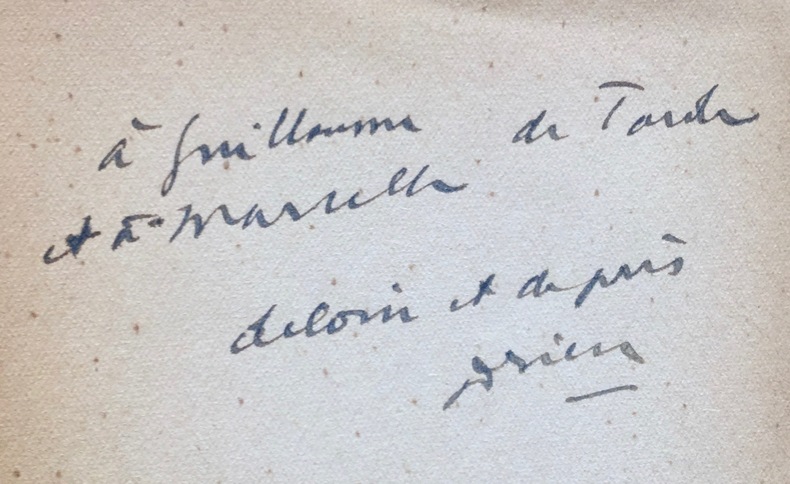 à Guillaume de Tarde
et à Marcelle
de loin et de près
Drieu